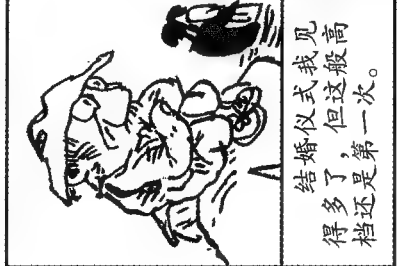 结婚仪式我见
得多了，但这般高
档还是第一次。